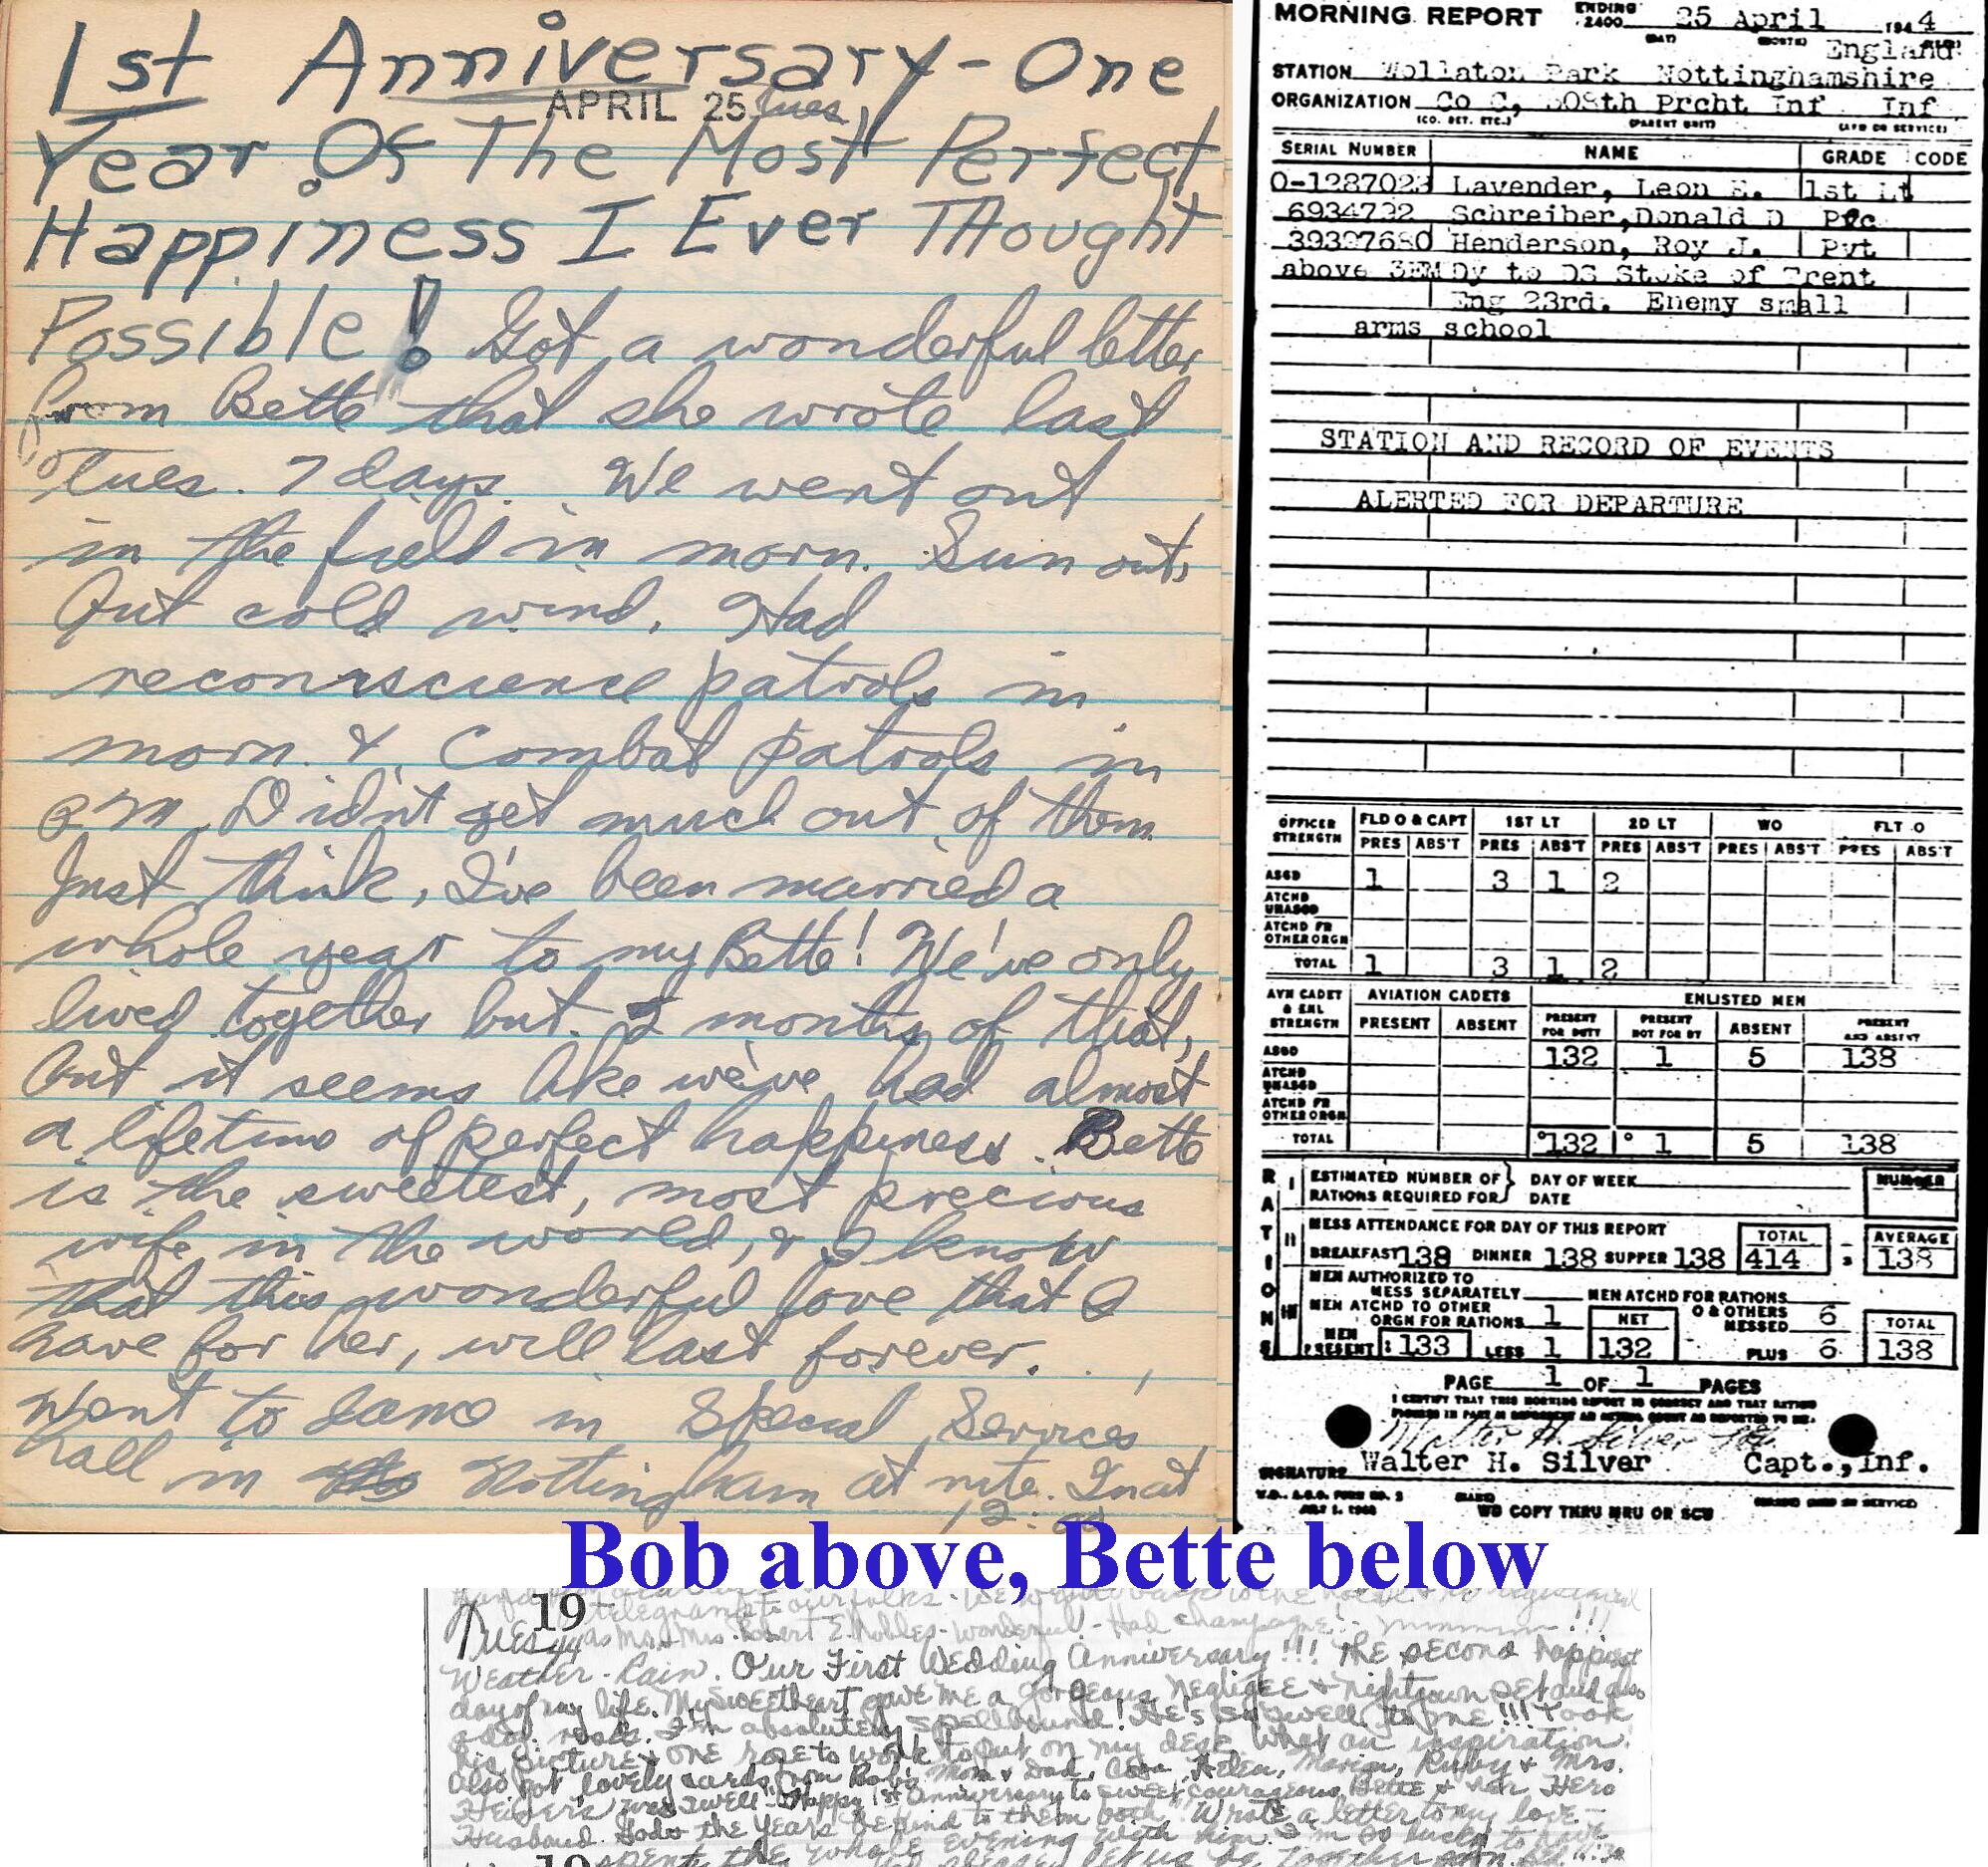 1st Anniversary - One
APRIL 25 Tues,
Year Of The Most Perfect
Happiness I Ever THought
Possible! Got a wonderful letter
from Bette that she wrote last
Tues. 7 days. We went out
in the field in morn. Sun out,
but cold wind. Had
reconniscience patrols in
morn. & combat patrols in
PM. Didn't get much out of them.
Just think, I've been married a
whole year to my Bette! We've only
lived together but months of that,
but it seems like we've had almost
a lifetime of perfect happiness. Bette
is the sweetest, most precious
wife in the world, & I know
that this wonderful love that I
have for her, will last forever.
Went to dance in Special Services
hall in Nottingham at nite. In at
12:
MORNING REPORT ENDING 2400 25 April 1944
England
STATION Wollaton Park Nottinghamshire
ORGANIZATION Co C, 508th Prcht Inf Inf
(CO. DET. ETC.) (PARENT UNIT) (ARM OR SERVICE)
SERIAL NUMBER NAME GRADE CODE
O-1287023 Lavender, Leon E. 1st Lt
6934722 Schreiber, Donald D Pfc
39397680 Henderson, Roy J. Pvt
above 3EM Dy to DS Stoke of Trent
Eng 23rd. Enemy small
arms school
STATION AND RECORD OF EVENTS
ALERTED FOR DEPARTURE
OFFICER STRENGTH FLD O & CAPT 1ST LT 2D LT WO FLT O
PRES ABS'T PRES ABS'T PRES ABS'T PRES ABS'T PRES ABS'T
ASGD 1 3 1 2
ATCHD UNASGD
ATCHD FR OTHER ORGN
TOTAL 1 3 1 2
AVN CADET & ENL STRENGTH AVIATION CADETS ENLISTED MEN
PRESENT ABSENT PRESENT FOR DUTY PRESENT NOT FOR DY ABSENT PRESENT AND ABSENT
ASGD 132 1 5 138
ATCHD UNASGD
ATCHD FR OTHER ORGN
TOTAL 132 1 5 138
RATIONS
I ESTIMATED NUMBER OF RATIONS REQUIRED FOR } DAY OF WEEK DATE NUMBER
II MESS ATTENDANCE FOR DAY OF THIS REPORT TOTAL AVERAGE
BREAKFAST 138 DINNER 138 SUPPER 138 414 3 138
III MEN AUTHORIZED TO MESS SEPARATELY MEN ATCHD FOR RATIONS
MEN ATCHD TO OTHER ORGN FOR RATIONS 1 NET O & OTHERS MESSED 6 TOTAL
MEN PRESENT: 133 LESS 1 132 PLUS 6 138
PAGE 1 OF 1 PAGES
I CERTIFY THAT THIS MORNING REPORT IS CORRECT AND THAT RATION
Walter H. Silver
Walter H. Silver Capt., Inf.
SIGNATURE
W.D., A.G.O. FORM NO. 1
WD COPY THRU MRU OR SCU
Bob above, Bette below
telegrams to our folks. We went back to the
19
as Mr. & Mrs. Robert E. Nobles - Wonderful! - Had champagne!
Tues
Weather - Rain. Our First Wedding Anniversary!!! The second happiest
day of my life. My Sweetheart gave me a gorgeous negligee & nightgown set and also
roses. I'm absolutely spellbound! He's so swell to me!!! Took
his picture & one rose to work to put on my desk. What an inspiration.
Also got lovely cards from Bob's Mom & Dad, Helen, Marion, Ruby & Mrs.
was swell "Happy 1st Anniversary to sweet courageous Bette & her Hero
Husband. the years be kind to them both". Wrote a letter to my love -
spent the whole evening with him. I'm so lucky to have
let us be together soon.